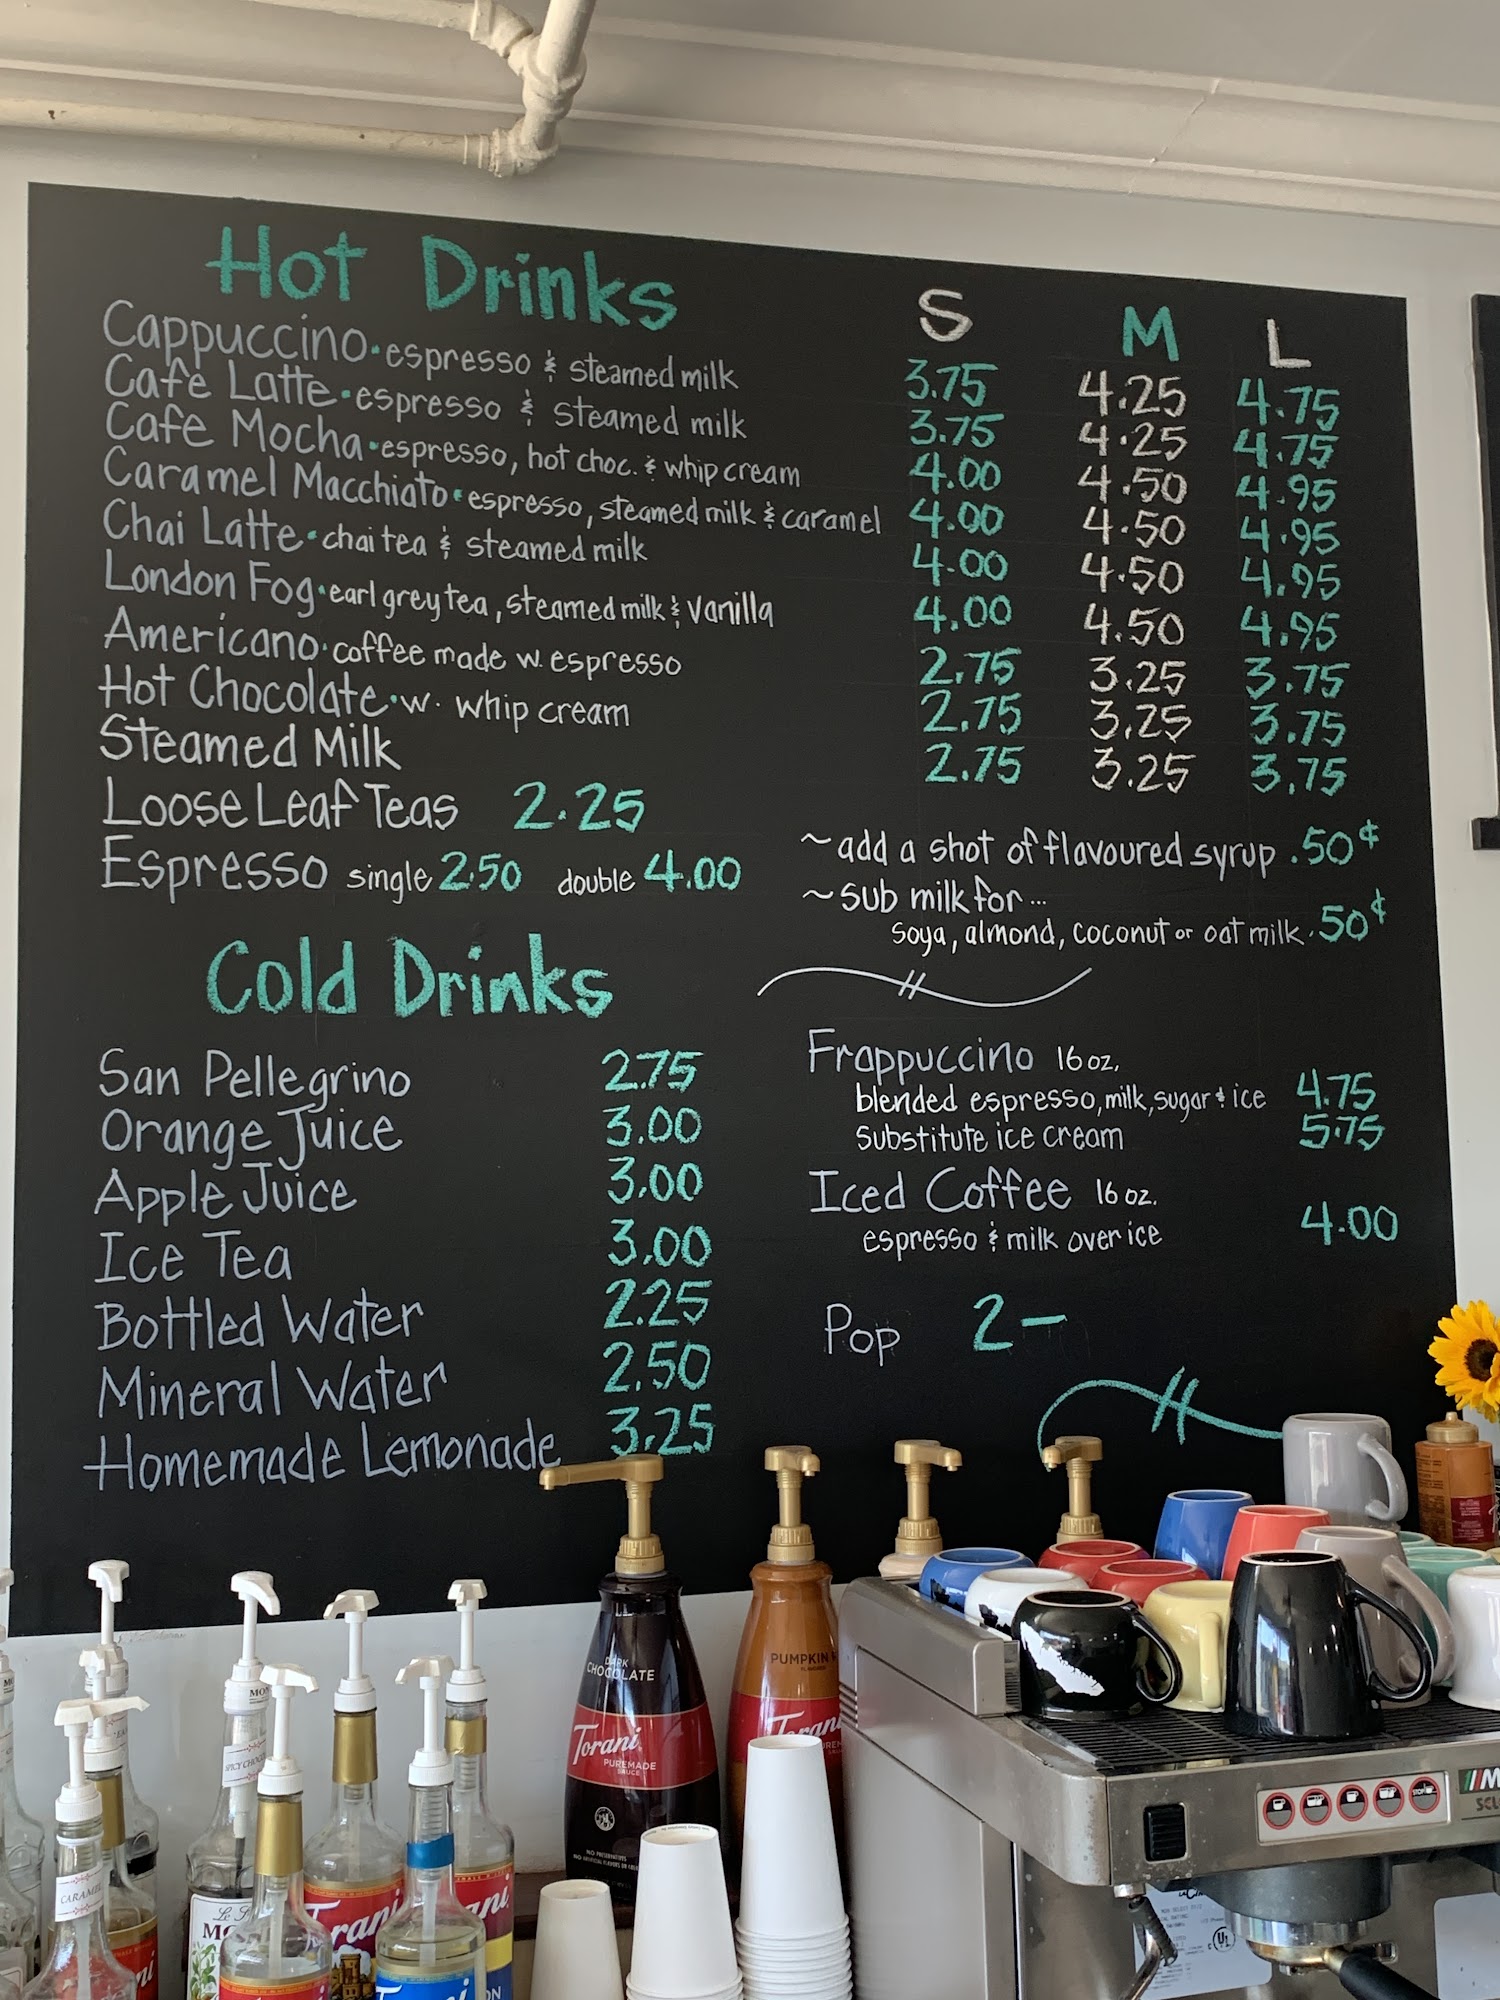 Hot Drinks S M L
Cappuccino · espresso & steamed milk 3.75 4.25 4.75
Cafe Latte · espresso & steamed milk 3.75 4.25 4.75
Cafe Mocha · espresso, hot choc. & whip cream 4.00 4.50 4.95
Caramel Macchiato · espresso, steamed milk & caramel 4.00 4.50 4.95
Chai Latte · chai tea & steamed milk 4.00 4.50 4.95
London Fog · earl grey tea, steamed milk & vanilla 4.00 4.50 4.95
Americano · coffee made w. espresso 2.75 3.25 3.75
Hot Chocolate · w. whip cream 2.75 3.25 3.75
Steamed Milk 2.75 3.25 3.75
Loose Leaf Teas 2.25
Espresso single 2.50 double 4.00
~ add a shot of flavoured syrup .50¢
~ sub milk for...
soya, almond, coconut or oat milk .50¢
Cold Drinks
San Pellegrino 2.75
Orange Juice 3.00
Apple Juice 3.00
Ice Tea 3.00
Bottled Water 2.25
Mineral Water 2.50
Homemade Lemonade 3.25
Frappuccino 16 oz.
blended espresso, milk, sugar & ice 4.75
substitute ice cream 5.75
Iced Coffee 16 oz.
espresso & milk over ice 4.00
Pop 2-
DARK
CHOCOLATE
Torani
PUREMADE
SAUCE
PUMPKIN
Torani
CARAMEL
Torani